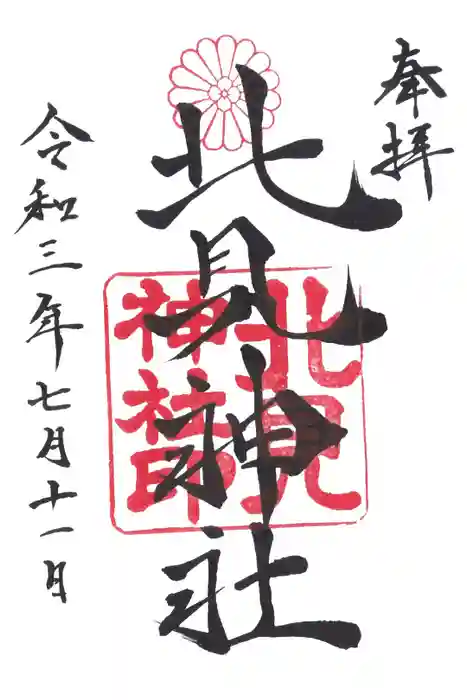 奉拝
北見神社
北見
神社印
令和三年七月十一月